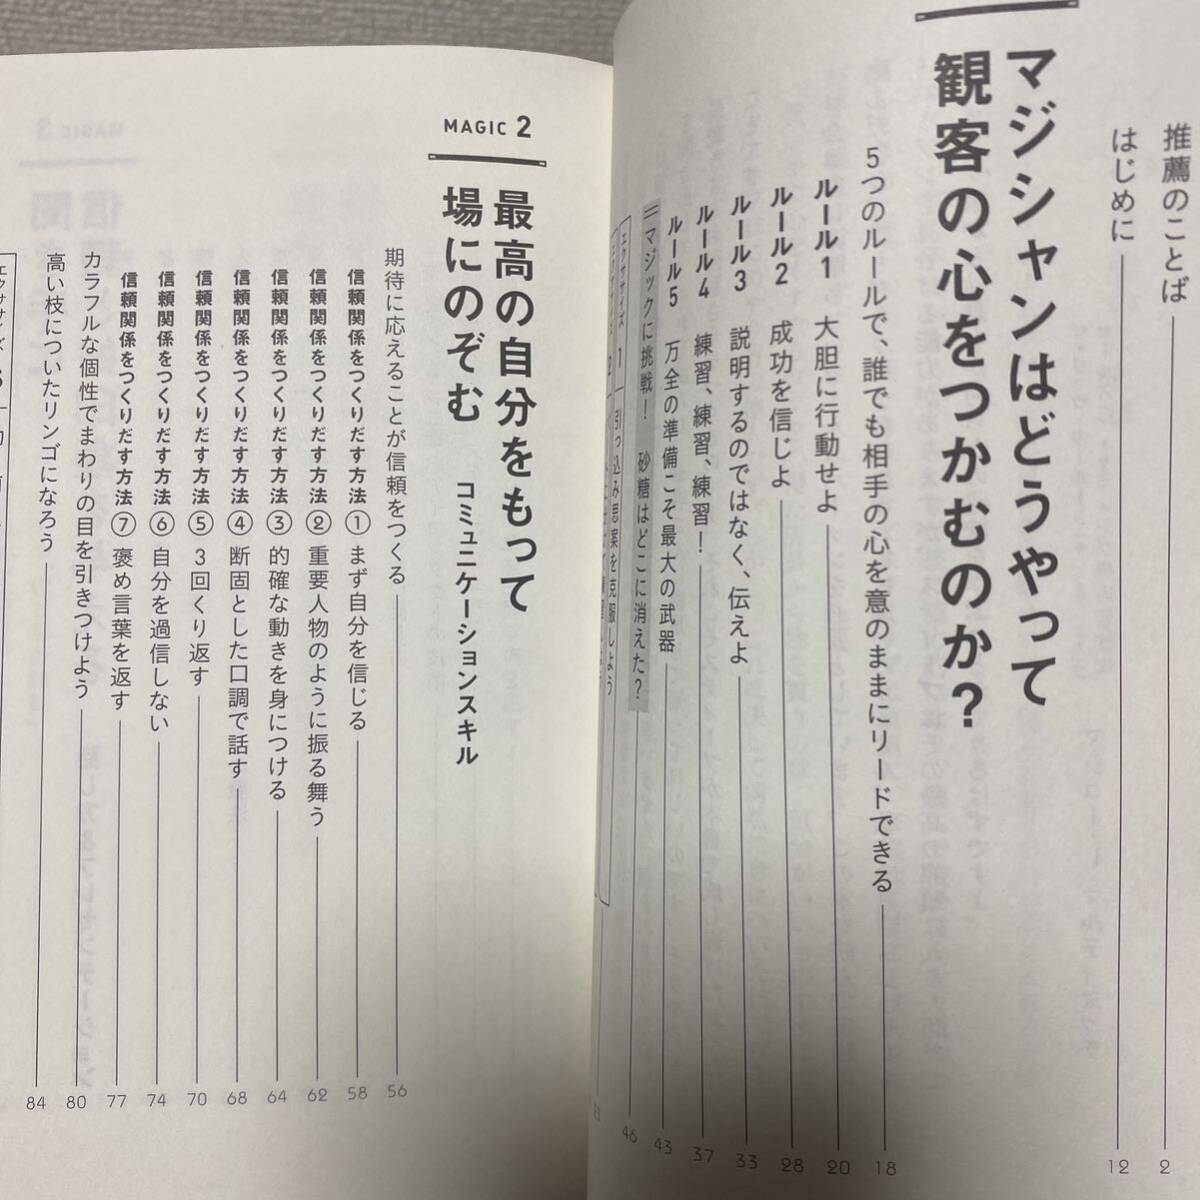 推薦のことば 2
はじめに 12
マジシャンはどうやって
観客の心をつかむのか?
5つのルールで、誰でも相手の心を意のままにリードできる 18
ルール1 大胆に行動せよ 20
ルール2 成功を信じよ 28
ルール3 説明するのではなく、伝えよ 33
ルール4 練習、練習、練習! 37
ルール5 万全の準備こそ最大の武器 43
マジックに挑戦! 砂糖はどこに消えた? 46
エクササイズ 1 引っ込み思案を克服しよう
MAGIC 2
最高の自分をもって
場にのぞむ コミュニケーションスキル
期待に応えることが信頼をつくる 56
信頼関係をつくりだす方法① まず自分を信じる 58
信頼関係をつくりだす方法② 重要人物のように振る舞う 62
信頼関係をつくりだす方法③ 的確な動きを身につける 64
信頼関係をつくりだす方法④ 断固とした口調で話す 68
信頼関係をつくりだす方法⑤ 3回くり返す 70
信頼関係をつくりだす方法⑥ 自分を過信しない 74
信頼関係をつくりだす方法⑦ 褒め言葉を返す 77
カラフルな個性でまわりの目を引きつけよう 80
高い枝についたリンゴになろう 84